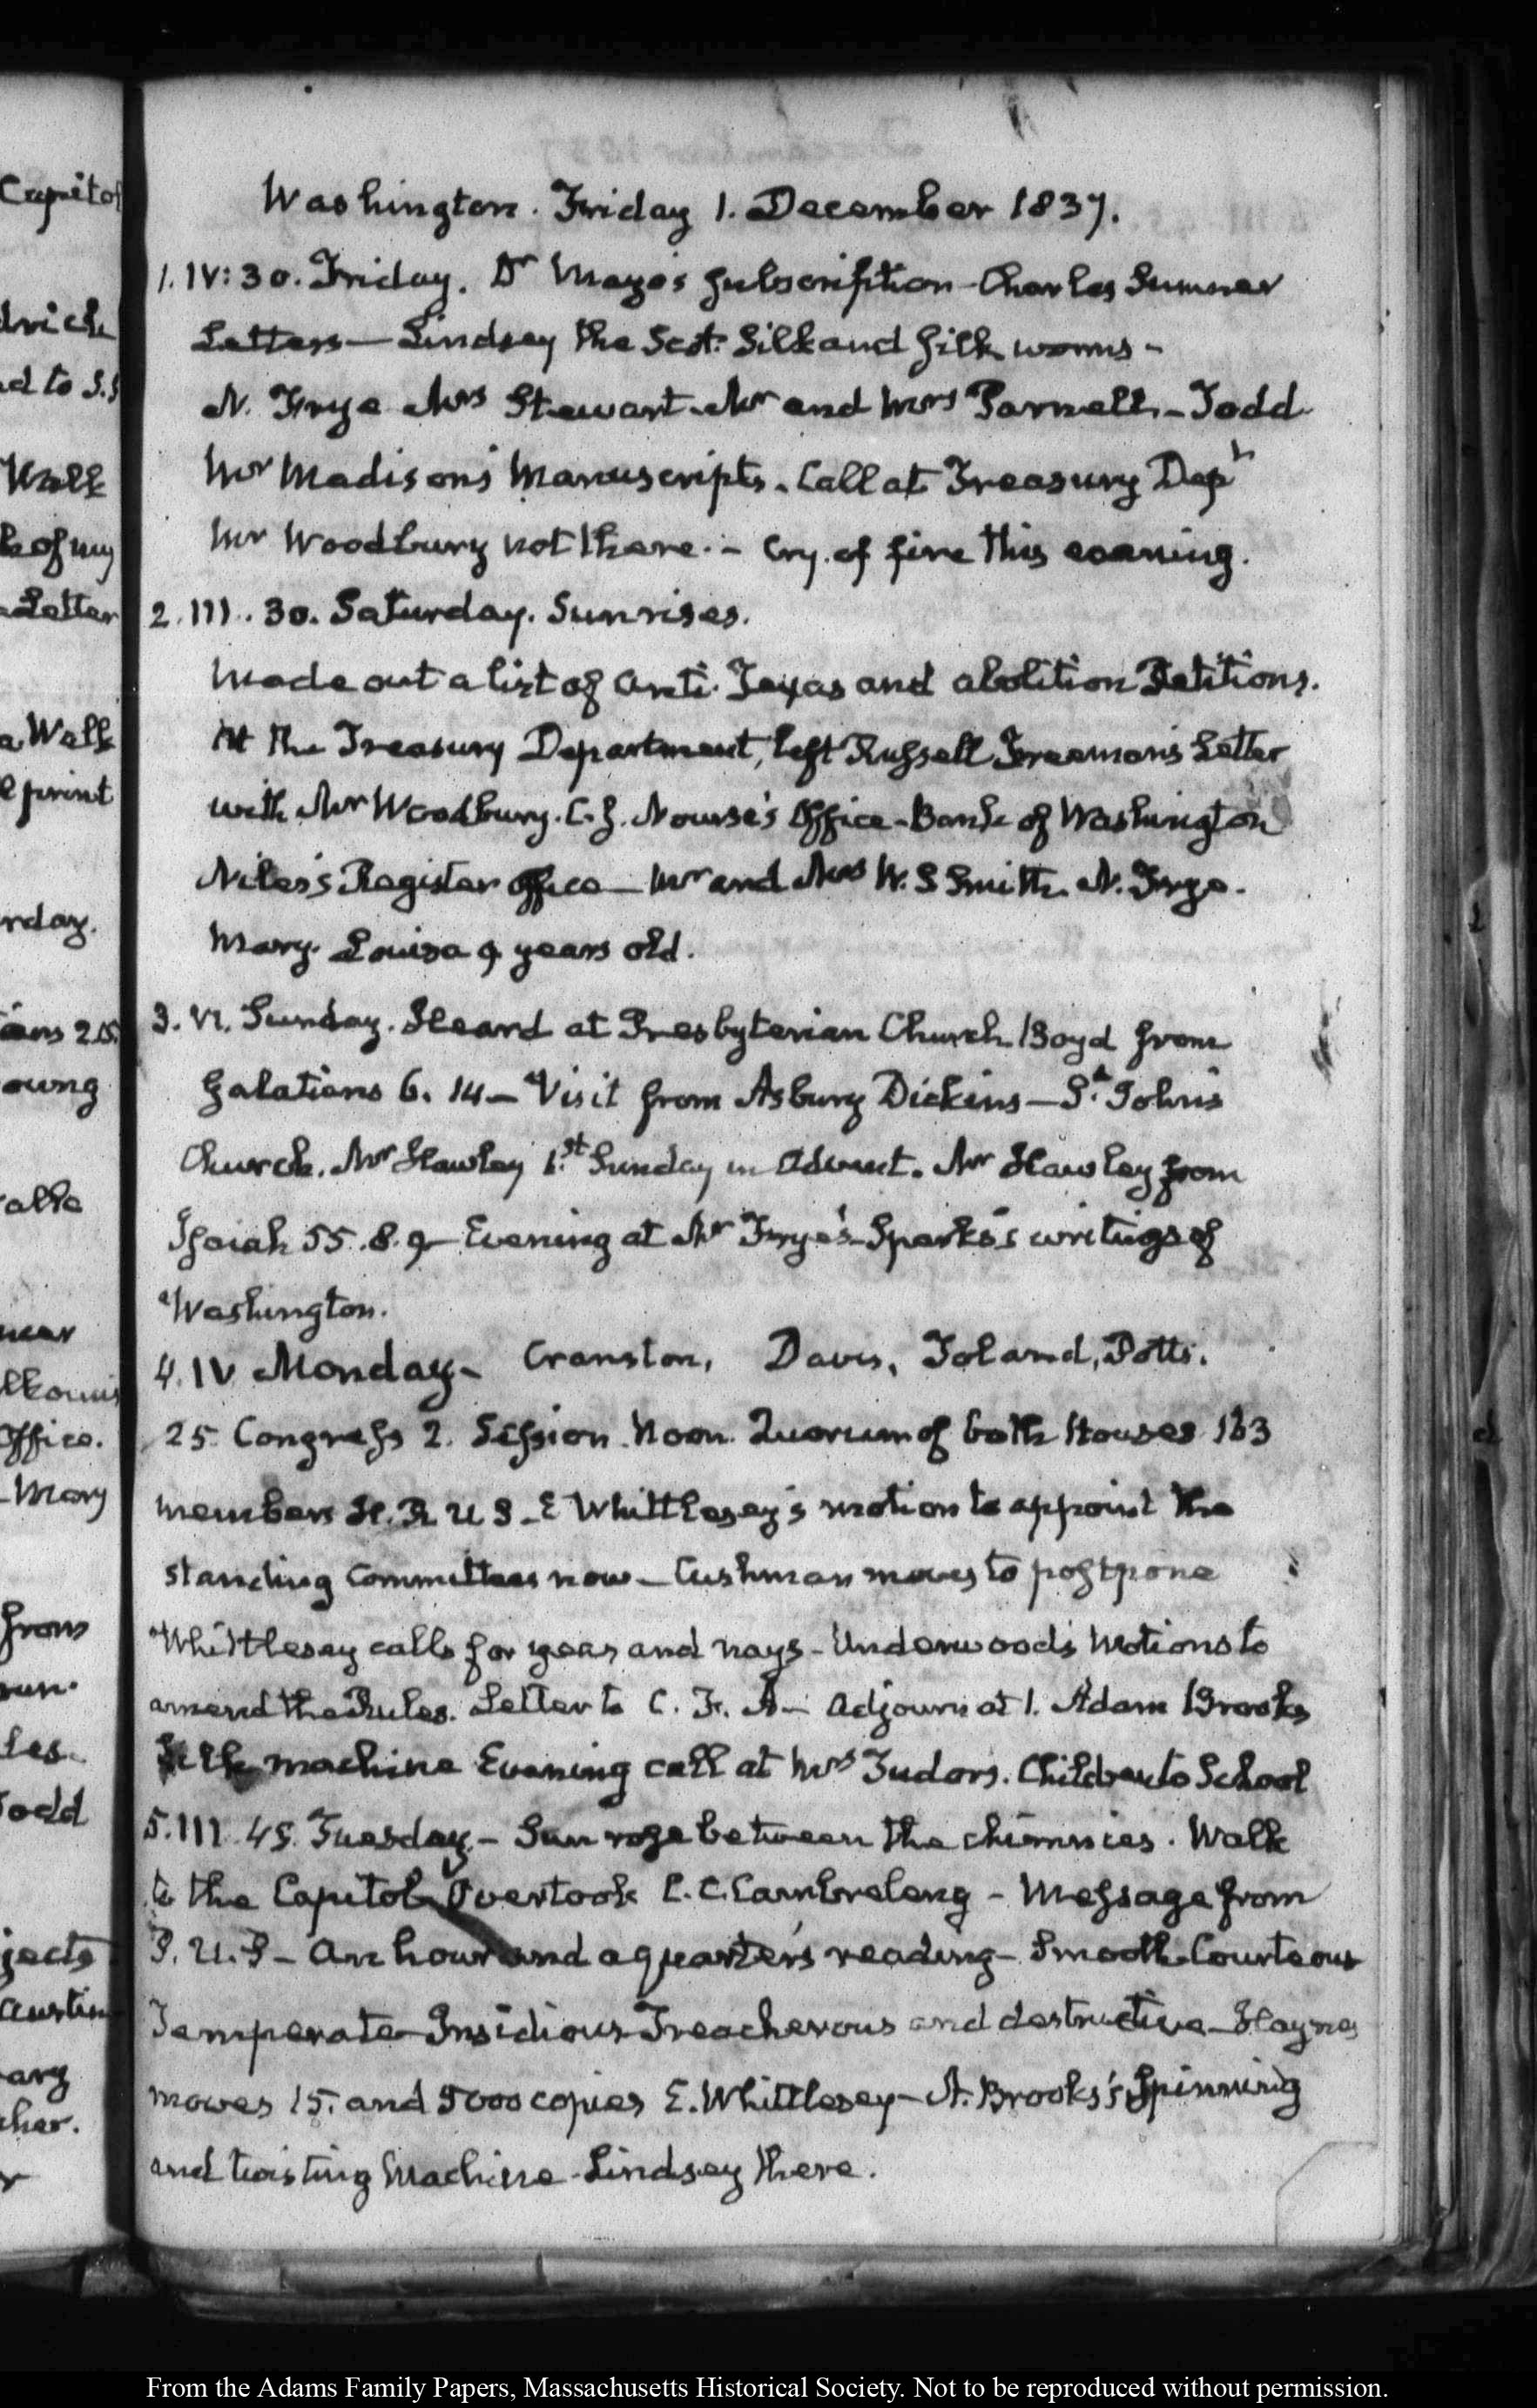 Washington. Friday 1. December 1837.
1. IV:30. Friday. Dr Mayo's subscription - Charles Sumner
Letters — Lindsey the Scot. Silk and silk worms -
N. Frye Mrs Stewart. Mr and Mrs Parnell. - Todd
Mr Madison's Manuscripts. Call at Treasury Dept
Mr Woodbury not there. - Cry of fire this evening.
2. III. 30. Saturday. Sun rises.
Made out a list of anti-Texas and abolition Petitions.
At the Treasury Department, left Russell Freeman's Letter
with Mr Woodbury. C. J. Nourse's Office - Bank of Washington
Niles's Register office — Mr and Mrs W. S Smith. N. Frye.
Mary Louisa 9 years old.
3. VI. Sunday. Heard at Presbyterian Church Boyd from
Galatians 6. 14 — Visit from Asbury Dickins — St. John's
Church. Mr Hawley 1.st Sunday in Advent. Mr Hawley from
Isaiah 55. 8. 9 — Evening at Mr Frye's - Sparks's writings of
Washington.
4. IV Monday - Cranston, Davis, Toland, Potts.
25. Congress 2. Session. Noon. Quorum of both Houses 163
members H. R. U S - E Whittlesey's motion to appoint the
standing Committees now — Cushman moves to postpone
Whittlesey calls for yeas and nays - Underwood's Motions to
amend the Rules. Letter to C. F. A — Adjourn at 1. Adam Brooks
Silk machine Evening call at Mrs Tudor's. Children to School
5. III. 45. Tuesday. - Sun rose between the chimnies. Walk
to the Capitol Overtook C. C. Cambreleng - Message from
P. U. S - An hour and a quarter's reading - Smooth Courteous
Temperate - Insidious Treacherous and destructive - Haynes
moves 15. and 5000 copies E. Whittlesey - A. Brooks's Spinning
and twisting Machine - Lindsey there.
Capitol
d to S.S
Walk
k of my
Letter
Walk
print
rday.
oung
Office.
Mary
from
From the Adams Family Papers, Massachusetts Historical Society. Not to be reproduced without permission.